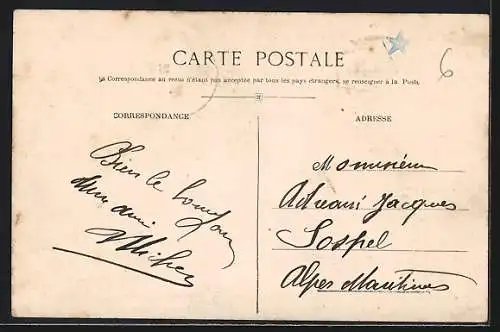 CARTE POSTALE
La Correspondance au recto n'étant pas acceptée par tous les pays étrangers, se renseigner à la Poste
6
CORRESPONDANCE
ADRESSE
Bien le bonjour
d'un ami
Monsieur
Jacques
Sospel
Alpes Maritimes